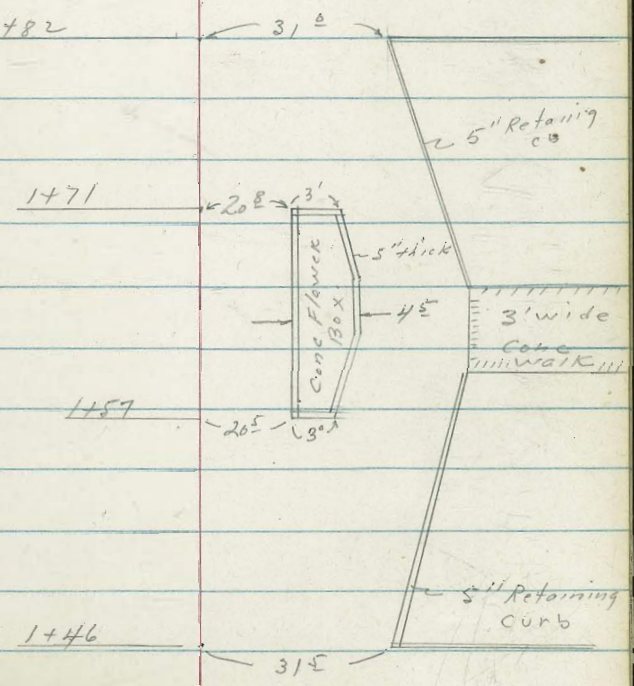 +82
31 0
5" Retaing
cb
1+71
20 8
3'
5" thick
Conc Flower
Box.
4 5
3' wide
Conc
walk
1+57
20 5
3 0
5" Retaining
Curb
1+46
31 5